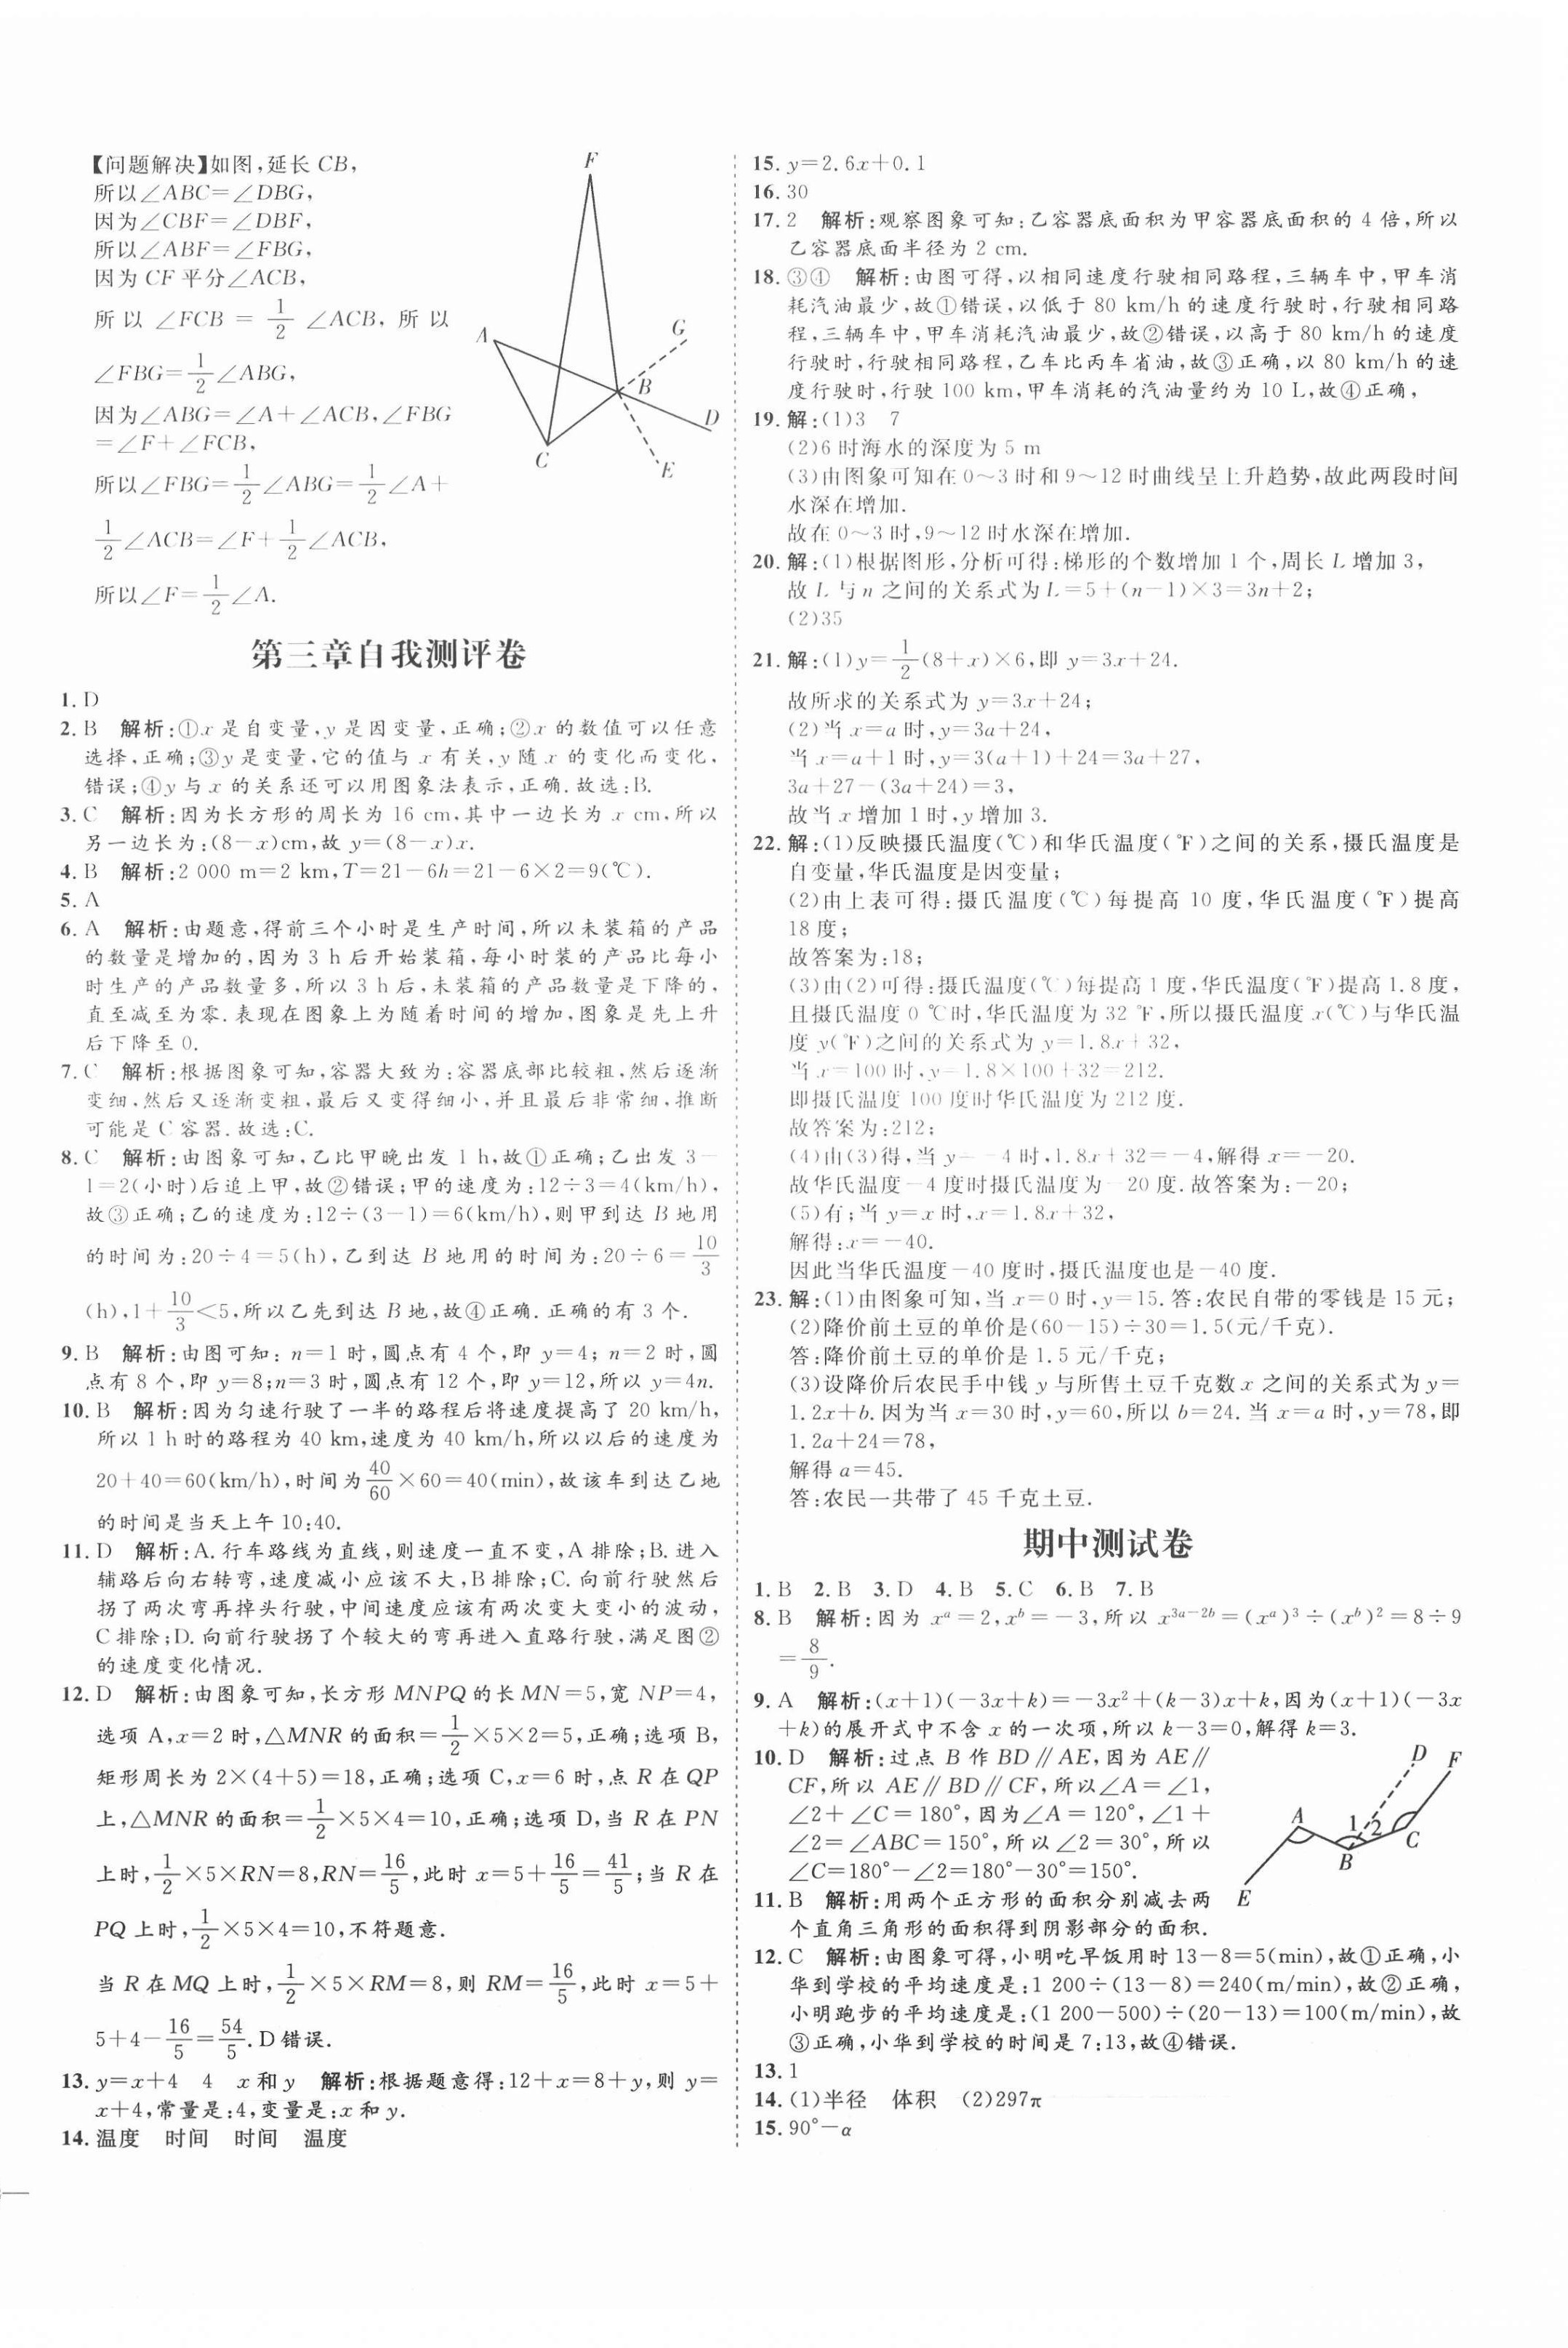 【问题解决】如图,延长 CB,
所以∠ABC=∠DBG,
因为∠CBF=∠DBF,
所以∠ABF=∠FBG,
因为 CF 平分∠ACB,
所以 ∠FCB = 1/2 ∠ACB, 所以
∠FBG=1/2∠ABG,
因为∠ABG=∠A+∠ACB,∠FBG
=∠F+∠FCB,
所以∠FBG=1/2∠ABG=1/2∠A+
1/2∠ACB=∠F+1/2∠ACB,
所以∠F=1/2∠A.
F
A
G
B
D
C
E
第三章自我测评卷
1. D
2. B 解析:①x 是自变量,y 是因变量,正确;②x 的数值可以任意
选择,正确;③y 是变量,它的值与 x 有关,y 随 x 的变化而变化,
错误;④y 与 x 的关系还可以用图象法表示,正确.故选:B.
3. C 解析:因为长方形的周长为 16 cm,其中一边长为 x cm,所以
另一边长为:(8-x)cm,故 y=(8-x)x.
4. B 解析:2 000 m=2 km,T=21-6h=21-6×2=9(℃).
5. A
6. A 解析:由题意,得前三个小时是生产时间,所以未装箱的产品
的数量是增加的,因为 3 h 后开始装箱,每小时装的产品比每小
时生产的产品数量多,所以 3 h 后,未装箱的产品数量是下降的,
直至减至为零.表现在图象上为随着时间的增加,图象是先上升
后下降至 0.
7. C 解析:根据图象可知,容器大致为:容器底部比较粗,然后逐渐
变细,然后又逐渐变粗,最后又变得细小,并且最后非常细,推断
可能是 C 容器.故选:C.
8. C 解析:由图象可知,乙比甲晚出发 1 h,故①正确;乙出发 3-
1=2(小时)后追上甲,故②错误;甲的速度为:12÷3=4(km/h),
故③正确;乙的速度为:12÷(3-1)=6(km/h),则甲到达 B 地用
的时间为:20÷4=5(h),乙到达 B 地用的时间为:20÷6=10/3
(h),1+10/3<5,所以乙先到达 B 地,故④正确.正确的有 3 个.
9. B 解析:由图可知: n=1 时,圆点有 4 个,即 y=4; n=2 时,圆
点有 8 个,即 y=8;n=3 时,圆点有 12 个,即 y=12,所以 y=4n.
10. B 解析:因为匀速行驶了一半的路程后将速度提高了 20 km/h,
所以 1 h 时的路程为 40 km,速度为 40 km/h,所以以后的速度为
20+40=60(km/h),时间为40/60×60=40(min),故该车到达乙地
的时间是当天上午 10:40.
11. D 解析:A.行车路线为直线,则速度一直不变,A 排除;B.进入
辅路后向右转弯,速度减小应该不大,B 排除;C.向前行驶然后
拐了两次弯再掉头行驶,中间速度应该有两次变大变小的波动,
C 排除;D.向前行驶拐了个较大的弯再进入直路行驶,满足图②
的速度变化情况.
12. D 解析:由图象可知,长方形 MNPQ 的长 MN=5,宽 NP=4,
选项 A,x=2 时,△MNR 的面积=1/2×5×2=5,正确;选项 B,
矩形周长为 2×(4+5)=18,正确;选项 C,x=6 时,点 R 在 QP
上,△MNR 的面积=1/2×5×4=10,正确;选项 D,当 R 在 PN
上时,1/2×5×RN=8,RN=16/5,此时 x=5+16/5=41/5;当 R 在
PQ 上时,1/2×5×4=10,不符题意.
当 R 在 MQ 上时,1/2×5×RM=8,则 RM=16/5,此时 x=5+
5+4-16/5=54/5.D 错误.
13. y=x+4 4 x 和 y 解析:根据题意得:12+x=8+y,则 y=
x+4,常量是:4,变量是:x 和 y.
14. 温度 时间 时间 温度
15. y=2.6x+0.1
16. 30
17. 2 解析:观察图象可知:乙容器底面积为甲容器底面积的 4 倍,所以
乙容器底面半径为 2 cm.
18. ③④ 解析:由图可得,以相同速度行驶相同路程,三辆车中,甲车消
耗汽油最少,故①错误,以低于 80 km/h 的速度行驶时,行驶相同路
程,三辆车中,甲车消耗汽油最少,故②错误,以高于 80 km/h 的速度
行驶时,行驶相同路程,乙车比丙车省油,故③正确,以 80 km/h 的速
度行驶时,行驶 100 km,甲车消耗的汽油量约为 10 L,故④正确,
19. 解:(1)3 7
(2)6 时海水的深度为 5 m
(3)由图象可知在 0~3 时和 9~12 时曲线呈上升趋势,故此两段时间
水深在增加.
故在 0~3 时,9~12 时水深在增加.
20. 解:(1)根据图形,分析可得:梯形的个数增加 1 个,周长 L 增加 3,
故 L 与 n 之间的关系式为 L=5+(n-1)×3=3n+2;
(2)35
21. 解:(1)y=1/2(8+x)×6,即 y=3x+24.
故所求的关系式为 y=3x+24;
(2)当 x=a 时,y=3a+24,
当 x=a+1 时,y=3(a+1)+24=3a+27,
3a+27-(3a+24)=3,
故当 x 增加 1 时,y 增加 3.
22. 解:(1)反映摄氏温度(℃)和华氏温度(℉)之间的关系,摄氏温度是
自变量,华氏温度是因变量;
(2)由上表可得:摄氏温度(℃)每提高 10 度,华氏温度(℉)提高
18 度;
故答案为:18;
(3)由(2)可得:摄氏温度(℃)每提高 1 度,华氏温度(℉)提高 1.8 度,
且摄氏温度 0 ℃时,华氏温度为 32 ℉,所以摄氏温度 x(℃)与华氏温
度 y(℉)之间的关系式为 y=1.8x+32,
当 x=100 时,y=1.8×100+32=212.
即摄氏温度 100 度时华氏温度为 212 度.
故答案为:212;
(4)由(3)得,当 y=-4 时,1.8x+32=-4,解得 x=-20.
故华氏温度-4 度时摄氏温度为-20 度.故答案为:-20;
(5)有;当 y=x 时,x=1.8x+32,
解得:x=-40.
因此当华氏温度-40 度时,摄氏温度也是-40 度.
23. 解:(1)由图象可知,当 x=0 时,y=15.答:农民自带的零钱是 15 元;
(2)降价前土豆的单价是(60-15)÷30=1.5(元/千克).
答:降价前土豆的单价是 1.5 元/千克;
(3)设降价后农民手中钱 y 与所售土豆千克数 x 之间的关系式为 y=
1.2x+b.因为当 x=30 时,y=60,所以 b=24.当 x=a 时,y=78,即
1.2a+24=78,
解得 a=45.
答:农民一共带了 45 千克土豆.
期中测试卷
1. B 2. B 3. D 4. B 5. C 6. B 7. B
8. B 解析:因为 xᵃ=2,xᵇ=-3,所以 x³ᵃ⁻²ᵇ=(xᵃ)³÷(xᵇ)²=8÷9
=8/9.
9. A 解析:(x+1)(-3x+k)=-3x²+(k-3)x+k,因为(x+1)(-3x
+k)的展开式中不含 x 的一次项,所以 k-3=0,解得 k=3.
10. D 解析:过点 B 作 BD∥AE,因为 AE∥
CF,所以 AE∥BD∥CF,所以∠A=∠1,
∠2+∠C=180°,因为∠A=120°,∠1+
∠2=∠ABC=150°,所以∠2=30°,所以
∠C=180°-∠2=180°-30°=150°.
D
F
A
1
2
C
B
E
11. B 解析:用两个正方形的面积分别减去两
个直角三角形的面积得到阴影部分的面积.
12. C 解析:由图象可得,小明吃早饭用时 13-8=5(min),故①正确,小
华到学校的平均速度是:1 200÷(13-8)=240(m/min),故②正确,
小明跑步的平均速度是:(1 200-500)÷(20-13)=100(m/min),故
③正确,小华到学校的时间是 7:13,故④错误.
13. 1
14. (1)半径 体积 (2)297π
15. 90°-α